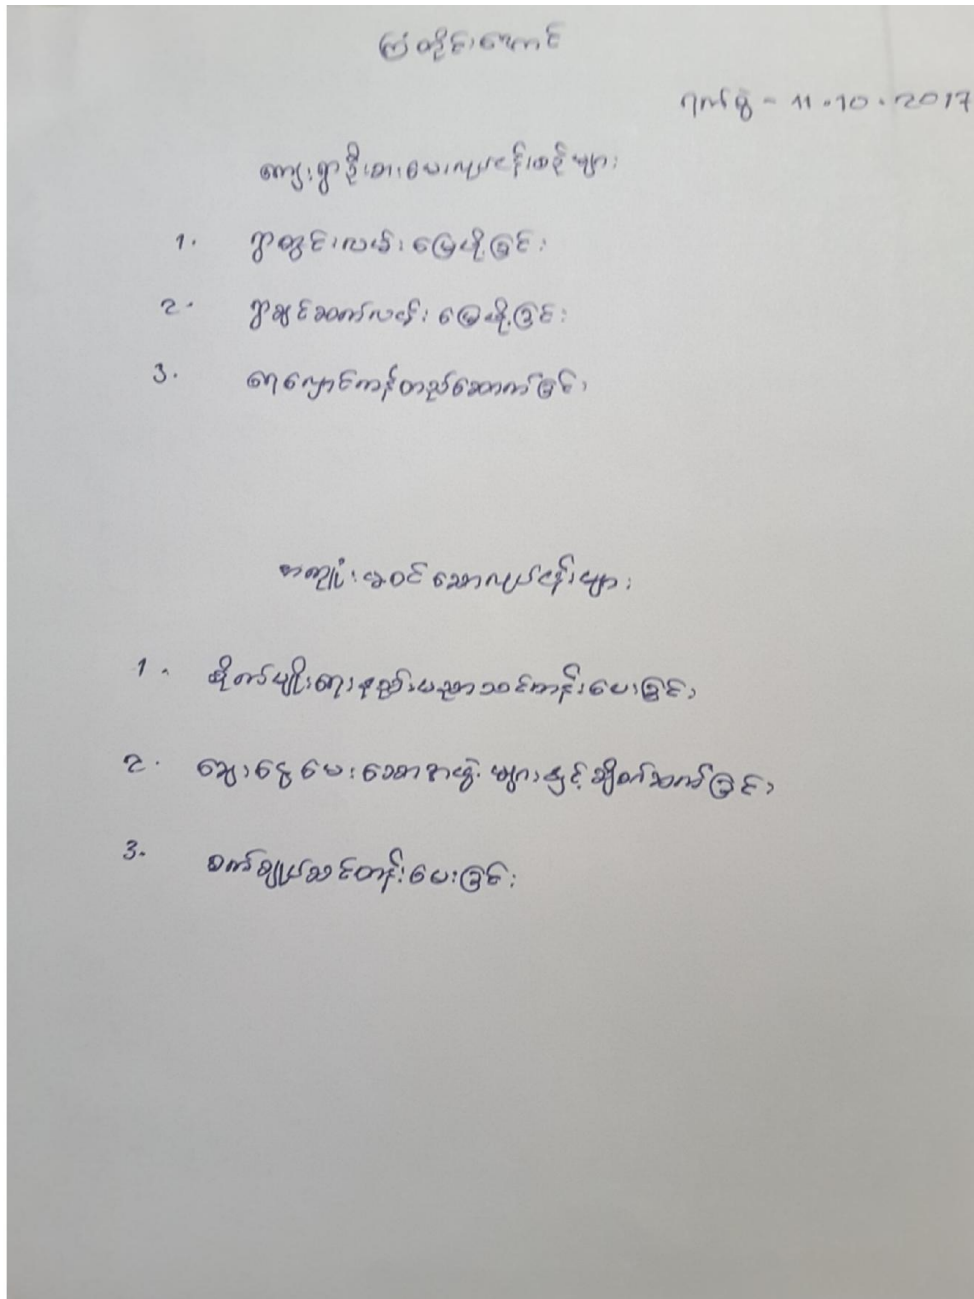 ကြံတိုင်အောင်
ရက်စွဲ - 11.10.2017
ကျေးရွာဦးစားပေးလုပ်ငန်းစဉ်များ
1. ရွာတွင်းလမ်း မြေဖို့ခြင်း
2. ရွာချင်းဆက်လမ်း မြေဖို့ခြင်း
3. ရေလှောင်ကန်တည်ဆောက်ခြင်း
အကျုံးမဝင်သောလုပ်ငန်းများ
1. စိုက်ပျိုးရေးနည်းပညာသင်တန်းပေးခြင်း
2. ချေးငွေပေးသောအဖွဲ့များနှင့်ချိတ်ဆက်ခြင်း
3. စက်ချုပ်သင်တန်းပေးခြင်း